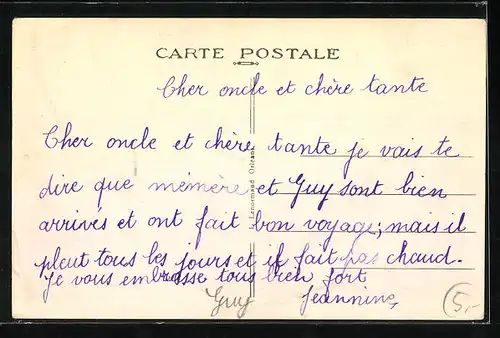 CARTE POSTALE
Cher oncle et chère tante
Cher oncle et chère tante je vais te
dire que mémère et Guy sont bien
arrivés et ont fait bon voyage; mais il
pleut tous les jours et il fait pas chaud.
Je vous embrasse tous bien fort
Guy Jeannine,
5,-
Lenormand Orléans